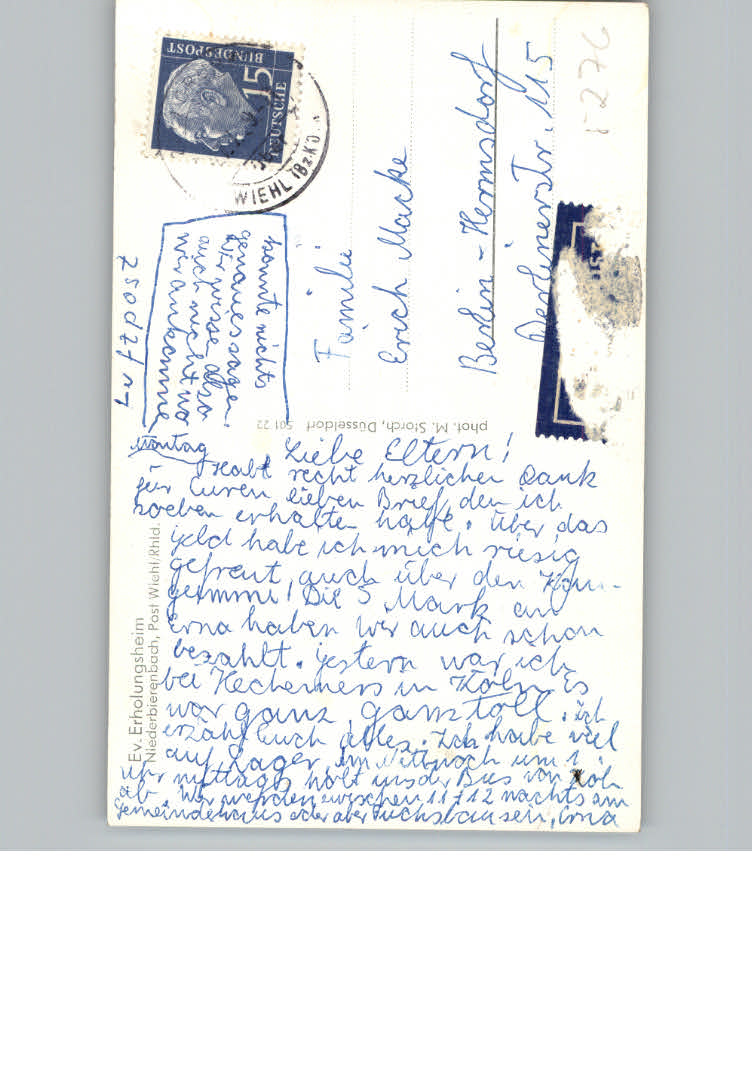 Montag
Liebe Eltern!
Habt recht herzlichen Dank
für Euren lieben Brief, den ich
soeben erhalten habe. Über das
Geld habe ich mich riesig
gefreut, auch über den
Die 5 Mark an
Erna haben wir auch schon
bezahlt. Gestern war ich
bei in Köln. Es
war ganz, ganz toll. Ich
erzähl Euch alles. Ich habe viel
auf Lager. Am Mittwoch um 1
Uhr mittags holt uns der Bus von
ab. Wir werden zwischen 11 + 12 nachts am
Gemeindehaus oder aber Fuchsbausen, Erna
konnte nichts
genaues sagen.
Wir wissen also
auch nicht wo
wir ankommen
Familie
Erich Macke
Berlin-Hermsdorf
Berlinerstr. 115
DEUTSCHE
BUNDESPOST
15
WIEHL (BZ. KÖ
phot. M. Storch, Düsseldorf 501 22
Ev. Erholungsheim
Niederbierenbach, Post Wiehl/Rhld.